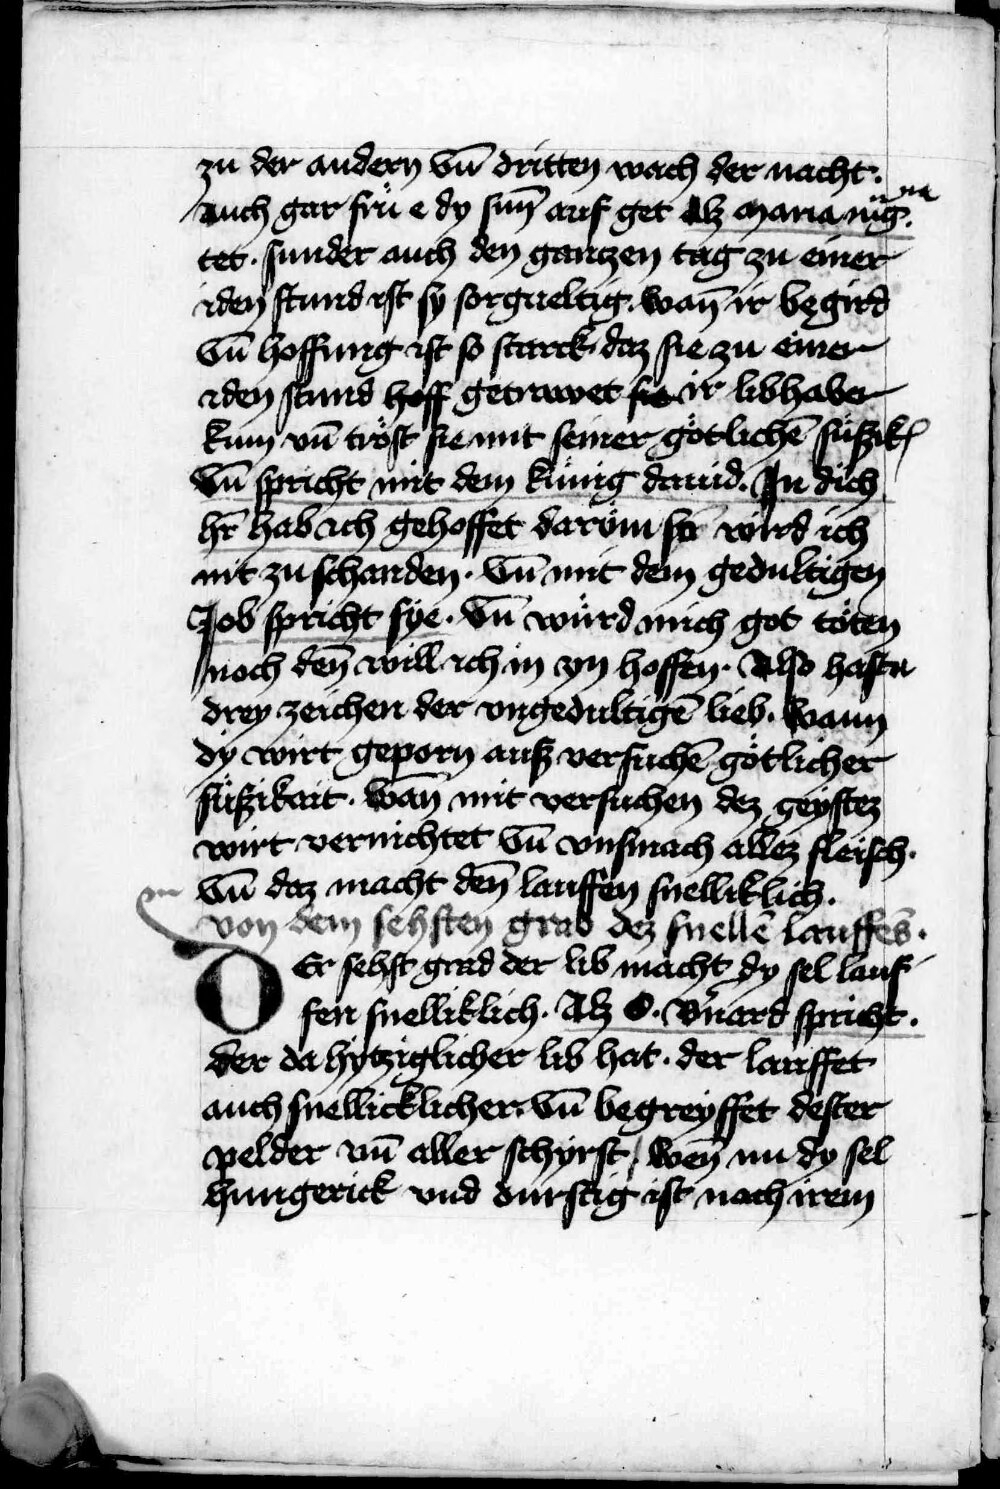 zu der andern vn̄ dritten wach der nacht.
auch gar frü e dy sun̄ auf get Alz maria
tet. sunder auch den gantzen tag zu einer
iden stund ist sy sorgueltig. wan̄ ir begird
vn̄ hoffung ist so starck. daz sie zu einer
iden stund hoff getrawet sie ir libhaber
kum vn̄ tröst sie mit seiner götlichē süßik
vn̄ spricht mit dem künig dauid. In dich
hr̄ hab ich gehoffet daröm wird ich
nit zu schanden. vn̄ mit dem gedultigen
Job spricht sye. vn̄ würd mich got töten
noch den̄ will ich in yn hoffen. Also hastu
drey zeichen der vngedultigē lieb. wann
dy wirt geporn auß versuchē götlicher
süßikait. wan̄ mit versuchen dez geystez
wirt vernichtet vn̄ vnsmach allez fleisch.
vn̄ daz macht den̄ lauffen snelliklich.
von dem sehsten grad dez snellē lauffēs.
DEr sehst grad der lib macht dy sel lauf
fen snelliklich. Alz S. Bn̄ard spricht.
der da hytziglicher lib hat. der lauffet
auch snellicklicher. vn̄ begreyffet dester
pelder vn̄ aller schyrst, wen̄ nu dy sel
hungerick vnd durstig ist noch irem